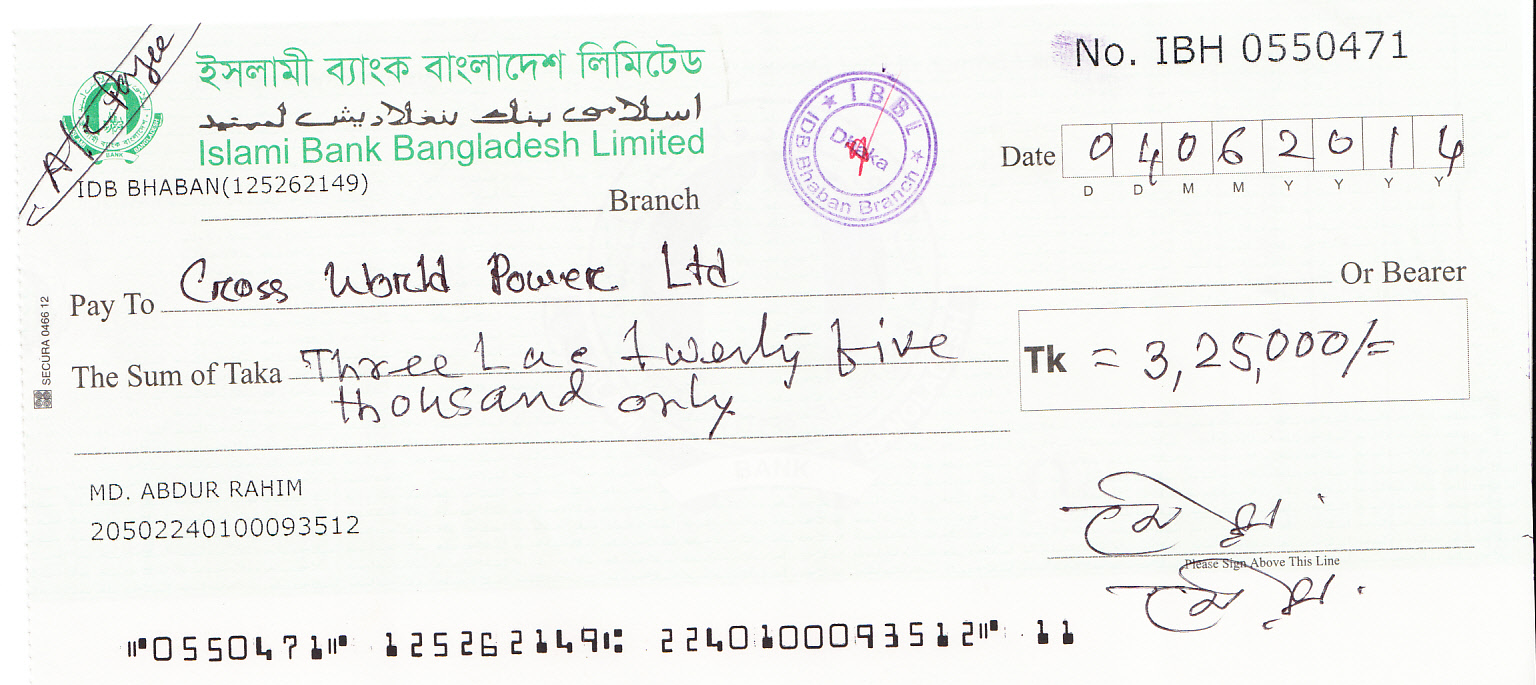 A/C Payee
ইসলামী ব্যাংক বাংলাদেশ লিমিটেড
اسلامى بنك بنغلاديش لميتيد
Islami Bank Bangladesh Limited
IDB BHABAN(125262149)
Branch
IBBL
Dhaka
IDB Bhaban Branch
No. IBH 0550471
Date 04062014
D D M M Y Y Y Y
Pay To Cross World Power Ltd Or Bearer
The Sum of Taka Three Lac twenty five
thousand only
Tk = 3,25,000/=
SECURA 0466 12
MD. ABDUR RAHIM
20502240100093512
Please Sign Above This Line
⑈0550471⑈ 125262149⑆ 2240100093512⑈ 11